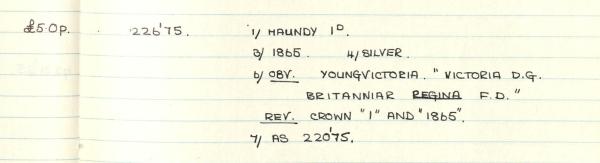 £5.0p. 226'75. 1/ MAUNDY 1D.
3/ 1865. 4/ SILVER.
6/ OBV. YOUNG VICTORIA. "VICTORIA D.G.
BRITANNIAR REGINA F.D."
REV. CROWN "1" AND "1865".
7/ AS 220'75.